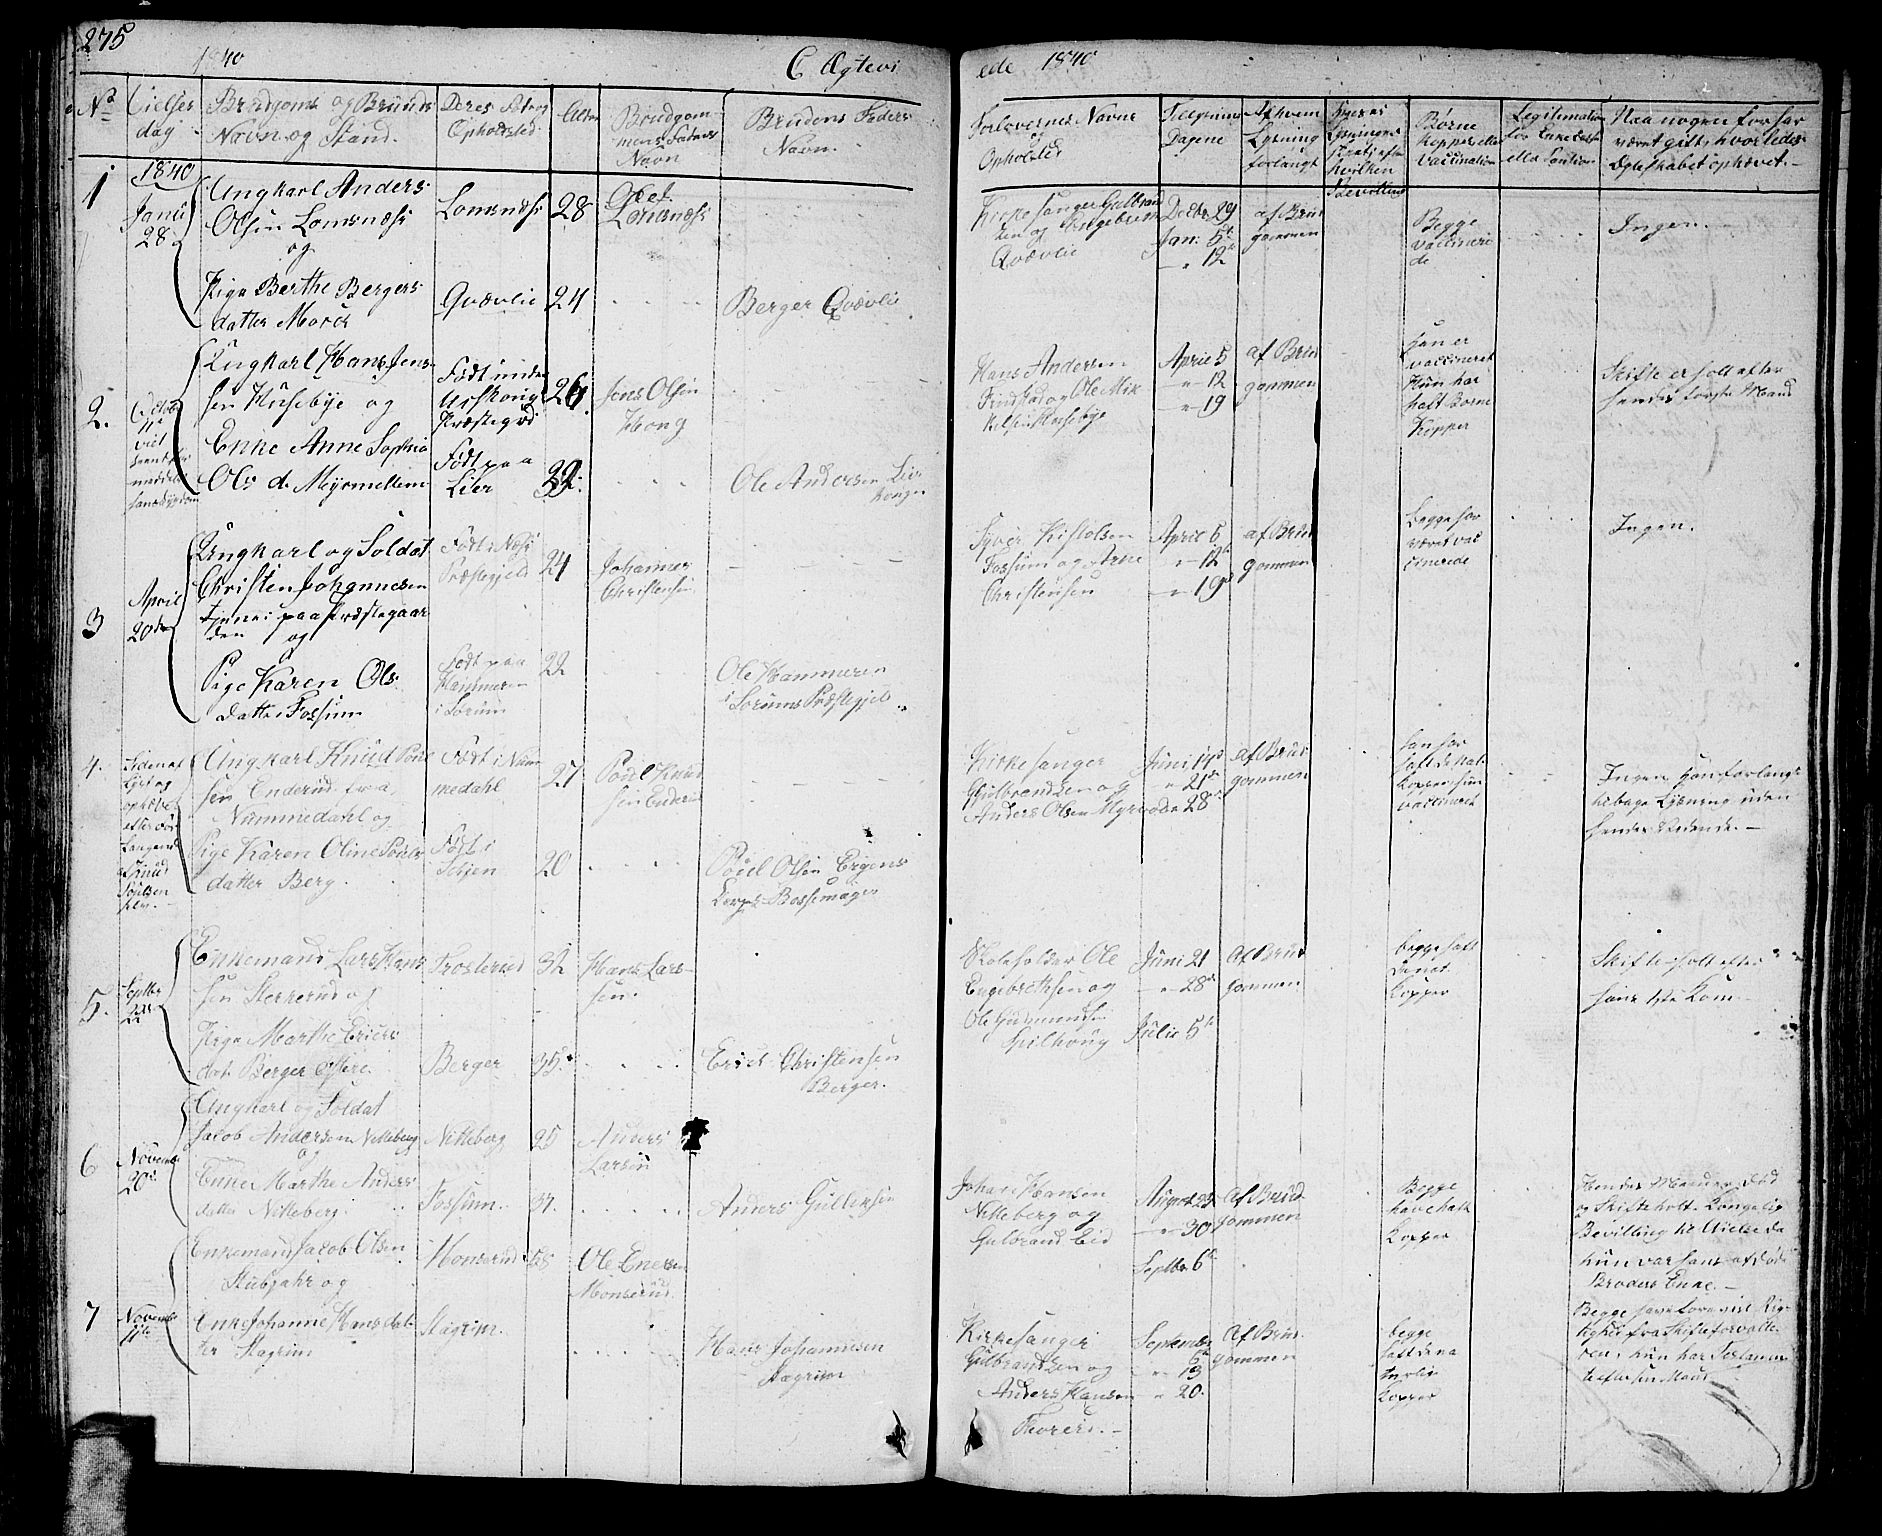 275
1840
C Ægtevi
ede 1840
No
Vielses
dag
Brudgoms og Bruuds
Navn og Stand.
Deres
Opholdsted.
Alder
Brudgom-
mens Faders
Navn
Brudens Faders
Navn.
Forlovernes Navne
og
Opholsted
Tillysnings
Dagene
Af hvem
Lysning
forlangt
Børne
kopper ella
Vaccination
Legitimation
for Enkesæde
ella Caution
Naa nogen før har
været gift, hvorledes
Ægteskabet ophævet.
1
1840
Janu
28
Ungkarl Anders
Olsen Lomsnæss
og
Pige Berthe Bergers
datter Morch
Lomsnæss
Qvævlie
28
24
Olef.
Lomsnæss
Berger Qvævlie
Kirkesanger Gulbrand
sen og Engebret
Qvævlie
Decbr. 29
Jan: 5te
" 12
af Brud
gommen
Begge
vaccineri
de
Ingen.
2.
Ungkarl Hans Jens
sen Huusebye og
Enke Anne Sophia
Ols d. Mÿsmellem
Født under
Urskougs
Præstegjd
Født paa
Lier
26
32
Jens Olsen
Houg
Ole Andersen Lier
Hans Andersen
Fridstad og Ole Mik
kelsen Huusebye
April 5
" 12
" 19
af Brud
gommen
Han er
vaccineret
Hun har
haft Børne
Kopper
Skifte er holt efter
hendes første Mand
3
April
20de
Ungkarl og Soldat
Christen Johannesen
tjener paa Præstegaar
den og
Pige Karen Ols
datter Fossum
Født i Næss
Præstegjeld
Født paa
Hammeren
i Sørum
24
22
Johannes
Christensen
Ole Hammeren
i Sørums Præstegjeld
Syver Kistolsen
Fossum og Arne
Christensen
April 5
" 12te
" 19
af Brud
gommen
begge har
været vac
cinerede
Ingen.
4.
Siden af
Lyst og
ophævet
efter for
langende
Knud
Poulsen
Ungkarl Knud Poul
sen Enderud fra
Nummedahl og
Pige Karen Oline Pouls
datter Berg
Født i Num
medahl
Født i
27
20
Poul Knud
sen Enderud
Poul Olsen Ergens
Korps Bøssemager
Kirkesanger
Gulbrandsen og
Anders Olsen Myrvold
Juni 14de
" 21de
" 28
af Brud
gommen
han har
haft de nat.
kopper, hun
vaccineret
Ingen, han forlangte
tilbage Lysning uden
hendes Vidende.
5.
Septbr
22
Enkemand Lars Hans
sen Sterkerud og
Pige Marthe Erics
dat. Berger Østere
Frosterud
Berger
32
35
Hans Lars-
sen.
Erick Christensen
Berger.
Skoleholder Ole
Engebretsen og
Ole Gudmundsen
Spilhoug
Juni 21
" 28
Julie 5te
af Brud
gommen
begge haft
de nat.
kopper
Skifte holt efter
hans 1ste Kone
6
Novemb
20de
Ungkarl og Soldat
Jacob Andersen Nitteberg
og
Enke Marthe Anders
datter Nitteberg
Nitteberg
Fossum
25
37
Anders
Larsen
Anders Gullersen
Johan Hansen
Nitteberg og
Gulbrand Eid
August 23
" 30
Septbr 6te
af Brud
gommen
Begge
have haft
kopper
Hendes Mand er død
og Skifte holt. Kongelig
Bevilling til Vielse da
hun var hans afdøde
Broders Enke.
7
Novemb
11te
Enkemand Jacob Olsen
Stubjahr og
Enke Johanne Hans dat-
ter Stagrim
Monserud
Stagrim.
58
Ole Enersen
Monserud
Hans Johannesen
Stagrim
Kirkesanger
Gulbrandsen og
Anders Hansen
Thorerd.
September
6te
" 13
" 20.
af Brud
gommen
begge
haft de na
turlige
kopper
Begge have foreviist Rig-
tighed fra Skifteforvalte-
ren, hun har Testament
efter sin Mand